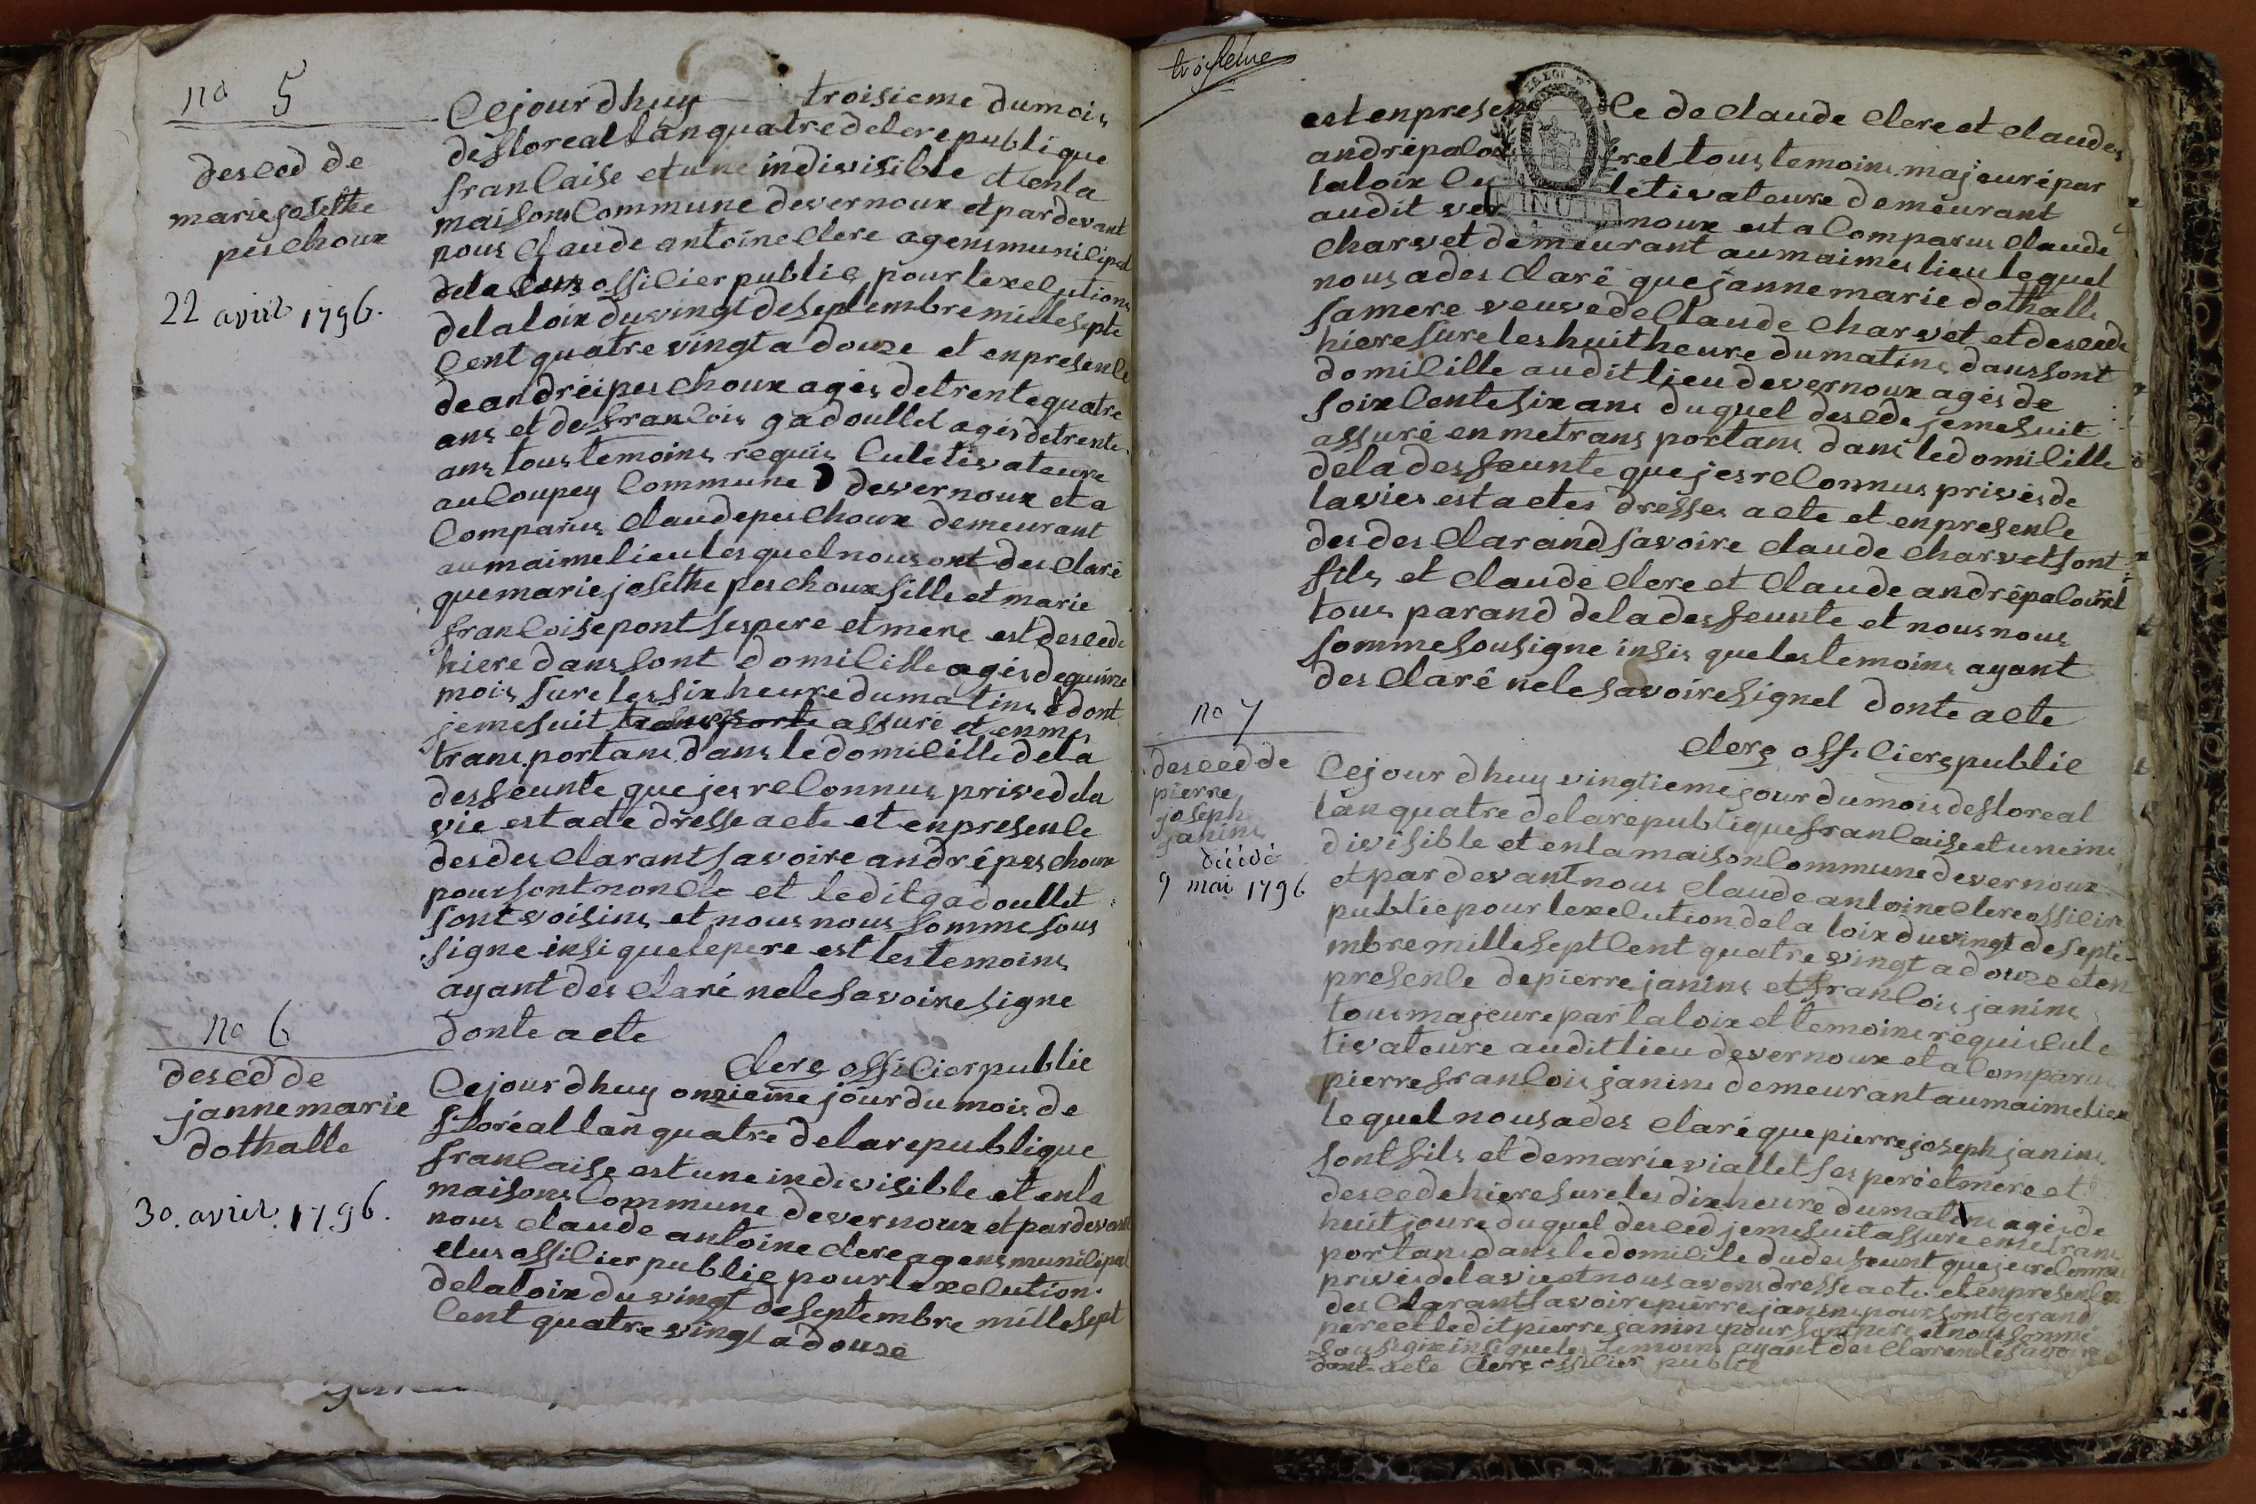 no 5
desced de
marie josethe
peschoux
22 avril 1796.
Cejourdhuy troisieme dumois
defloreal lan quatre delarepublique
francaise et une indivisible et enla
maisons Commune devernoux et pardevant
nous claude antoine clere agens municipal
dela officier public pour lexecutions
delaloix duvingt deseptembre mille septe
Cent quatre vingt a douze et enpresence
de andréipeschoux agés detrente quatre
ans et defrancois gadoullet agés detrente
ans tous temoins requis Culetivateure
au Coupey Commune devernoux et a
Comparus claude peschoux demeurant
aumaimelieu lesquel nous ont desclaré
quemarie josethe peschoux fille et marie
francoise pont sespere et mere est descede
hiere dans sont domicille agés dequinze
mois sure les six heure du matins dont
jemesuit transporte assuré et enmes
transportans dans le domicille dela
desfeunte que jes reconnus privedela
vie est ade dresse acte et enpresence
des desclarant savoire andrépeschoux
poursont noncle et ledit gadoullet
sont voisins et nous nous somme sous
signe insi quelepere est les temoins
ayant desclaré nele savoire signe
donte acte
clere officier public
no 6
desced de
janne marie
dothalle
30. avril. 1796.
Cejourdhuy onzieme jour du mois de
floréal lan quatre delarepublique
francaise est une indivisible et enla
maisons Commune devernoux et pardevant
nous claude antoine clere agens municipal
elus officier public pour lexecution
delaloix du vingt deseptembre mille sept
Cent quatre vingt a douse
troisieme
est enpresence de claude clere et claude
andrépalou tous temoins majeurépar
laloix Culetivateure demeurant
audit vernoux est a Comparus claude
charvet demeurant aumaimes lieu lequel
nous a desclaré que janne marie dothalle
samere veuve de claude charvet et descede
hiere sure les huit heure du matins dans sont
domicille audit lieu devernoux agés de
soixcente six ans duquel descede jemesuit
assuré en metransportans dans ledomicille
dela desfeunte que jes reconnus privés de
lavies est a etes dresses acte et enpresence
des desclarand savoire claude charvet sont
fils et claude clere et claude andrépalouret
tous parand dela desfeunte et nous nous
somme sousigne insis que les temoins ayant
desclaré nele savoire signel donte acte
clere officiere public
no 7
descedde
pierre
joseph
janins
décédé
9 mai 1796
Cejour dhuy vingtieme jour du mois defloreal
lan quatre delarepublique francaise et unein
divisible et enla maison Commune devernoux
et par devant nous claude antoine clere officire
public pour lexecution dela loix duvingt desepte
mbre mille sept Cent quatre vingt a douze et en
presence de pierre janins et francois janins
tous majeure par laloix et temoins requis Cule
tivateure audit lieu devernoux et a Comparu
pierre francois janins demeurant aumaimelieu
lequel nous a desclaré que pierre joseph janins
sont fils et de marie viallet ses pere et mere et
descede hiere sure les dix heure du matins agés de
huit joure duquel desced jemesuit assure en metrans
portans dans le domicile du desfeunt que je reconnu
privés delavie et nous avons dresse acte et enpresence
des clarant savoire pierre janins pour sont gerand
pere et ledit pierre janins pour sont pere et nous somme
sousigne insi que les temoins ayant desclare nele savoire
dont acte clere officier public